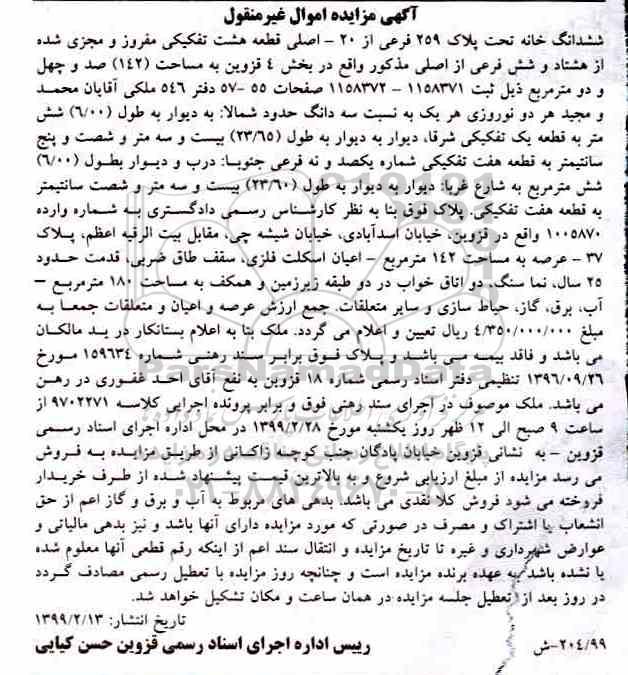 آگهی مزایده اموال غیرمنقول
ششدانگ خانه تحت پلاک ۲۵۹ فرعی از ۲۰ - اصلی قطعه هشت تفکیکی مفروز و مجزی شده
از هشتاد و شش فرعی از اصلی مذکور واقع در بخش ۴ قزوین به مساحت (۱۴۲) صد و چهل
و دو مترمربع ذیل ثبت ۱۱۵۸۳۷۱ - ۱۱۵۸۳۷۲ صفحات ۵۵ -۵۷ دفتر ۵۴۶ ملکی آقایان محمد
و مجید هر دو نوروزی هر یک به نسبت سه دانگ حدود شمالا: به دیوار به طول (۶/۰۰) شش
متر به قطعه یک تفکیکی شرقا، دیوار به دیوار به طول (۲۳/۶۵) بیست و سه متر و شصت و پنج
سانتیمتر به قطعه هفت تفکیکی شماره یکصد و نه فرعی جنوبا: درب و دیوار بطول (۶/۰۰)
شش مترمربع به شارع غربا: دیوار به دیوار به طول (۲۳/۶۰) بیست و سه متر و شصت سانتیمتر
به قطعه هفت تفکیکی. پلاک فوق بنا به نظر کارشناس رسمی دادگستری به شماره وارده
۱۰۰۵۸۷۰ واقع در قزوین، خیابان اسدآبادی، خیابان شیشه چی، مقابل بیت الرقیه اعظم، پلاک
۳۷ - عرصه به مساحت ۱۴۲ مترمربع - اعیان اسکلت فلزی، سقف طاق ضربی، قدمت حدود
۲۵ سال، نما سنگ، دو اتاق خواب در دو طبقه زیرزمین و همکف به مساحت ۱۸۰ مترمربع -
آب، برق، گاز، حیاط سازی و سایر متعلقات. جمع ارزش عرصه و اعیان و متعلقات جمعا به
مبلغ ۴/۳۵۰/۰۰۰/۰۰۰ ریال تعیین و اعلام می گردد. ملک بنا به اعلام بستانکار در ید مالکان
می باشد و فاقد بیمه می باشد و پلاک فوق برابر سند رهنی شماره ۱۵۹۶۳۴ مورخ
۱۳۹۶/۰۹/۲۶ تنظیمی دفتر اسناد رسمی شماره ۱۸ قزوین به نفع آقای احد غفوری در رهن
می باشد. ملک موصوف در اجرای سند رهنی فوق و برابر پرونده اجرایی کلاسه ۹۷۰۲۲۷۱ از
ساعت ۹ صبح الی ۱۲ ظهر روز یکشنبه مورخ ۱۳۹۹/۲/۲۸ در محل اداره اجرای اسناد رسمی
قزوین - به نشانی قزوین خیابان پادگان جنب کوچه ژاکسانی از طریق مزایده به فروش
می رسد مزایده از مبلغ ارزیابی شروع و به بالاترین قیمت پیشنهاد شده از طرف خریدار
فروخته می شود فروش کلا نقدی می باشد، بدهی های مربوط به آب و برق و گاز اعم از حق
انشعاب یا اشتراک و مصرف در صورتی که مورد مزایده دارای آنها باشد و نیز بدهی مالیاتی و
عوارض شهرداری و غیره تا تاریخ مزایده و انتقال سند اعم از اینکه رقم قطعی آنها معلوم شده
یا نشده باشد به عهده برنده مزایده است و چنانچه روز مزایده با تعطیل رسمی مصادف گردد
در روز بعد از تعطیل جلسه مزایده در همان ساعت و مکان تشکیل خواهد شد.
تاریخ انتشار: ۱۳۹۹/۲/۱۳
رییس اداره اجرای اسناد رسمی قزوین حسن کیایی
۲۰۴/۹۹-ش
ParsNamadData